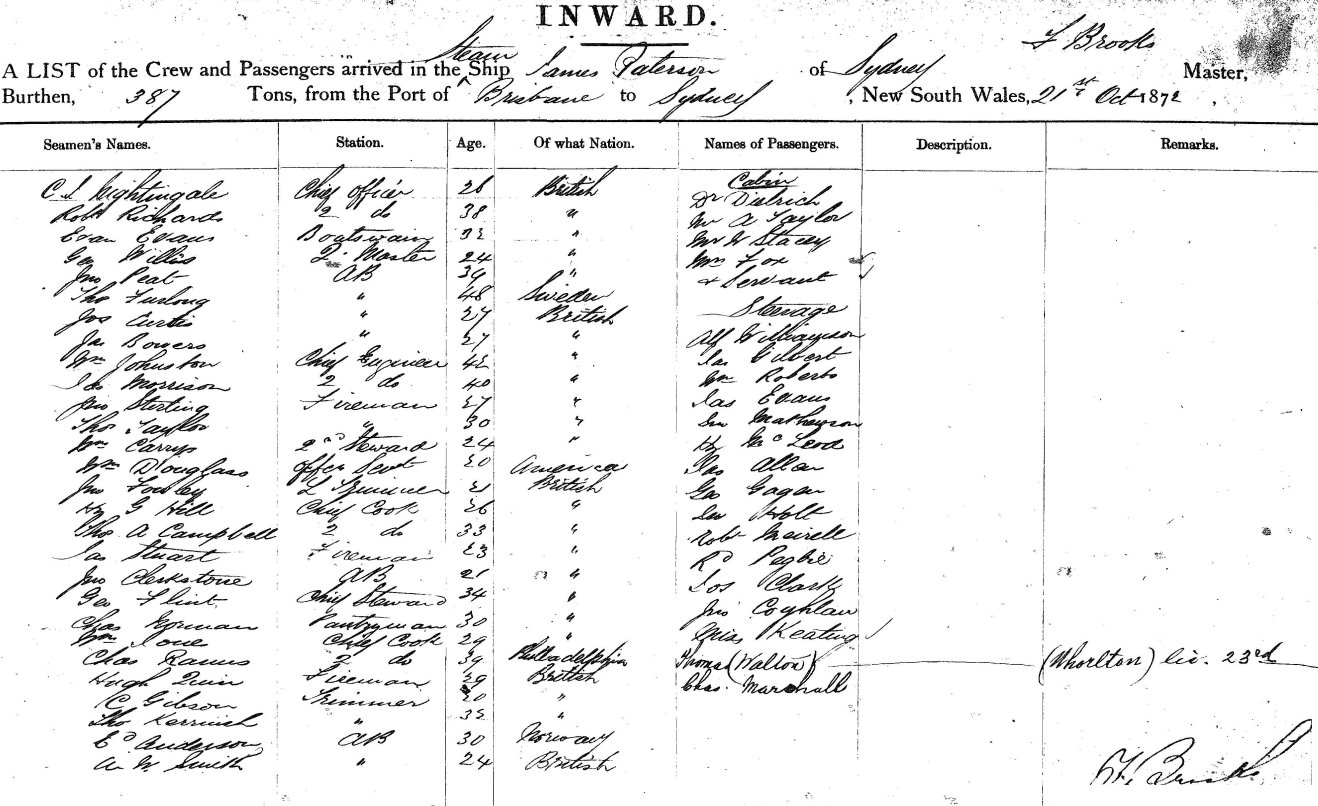 INWARD.
A LIST of the Crew and Passengers arrived in the Steam Ship James Paterson of Sydney F Brooks Master,
Burthen, 387 Tons, from the Port of Brisbane to Sydney, New South Wales, 21st Oct 1872
Seamen's Names. Station. Age. Of what Nation. Names of Passengers. Description. Remarks.
Cabin
Nightingale Chief Officer 26 British Dr Dietrich
Robt Richards 2 do 38 " Mr A Taylor
Evan Evans Boatswain 32 " Mr W Stacey
Geo Willis Q. Master 24 " Mrs Fox
Jno Peat AB 39 " + Servant
Tho Furlong " 48 Sweden
Jos Curtis " 27 British Steerage
Jas Bowers " 27 " Alf Williamson
Wm Johnston Chief Engineer 42 " Jas Gilbert
Jas Morrison 2 do 40 " Wm Roberts
Jno Sterling Fireman 27 " Jas Evans
Tho Taylor " 30 " Mathewson
Wm 2nd Steward 24 " Hy McLeod
Wm Douglass Offcr Servt 20 America Jas Allan
Jno Fowley 21 British Geo Gagan
Hy G Hill Chief Cook 26 " Holt
Tho A Campbell 2 do 33 " Robt
Jas Stuart Fireman 23 " Rd
Jno Clerkstone AB 21 " Jos Clark
Geo Flint Chief Steward 34 " Jno Coghlan
Chas Norman Pantryman 30 " Miss Keating
Wm Chief Cook 29 "
Chas 2 do 39 Philadelphia Thomas (Walton) (Whorlton) lic. 23rd
Hugh Quin Fireman 29 British Chas. Marshall
R Gibson Trimmer 20 "
Tho Kerruish " 32 "
Ed Anderson AB 30 Norway
W. Smith " 24 British
F. Brooks